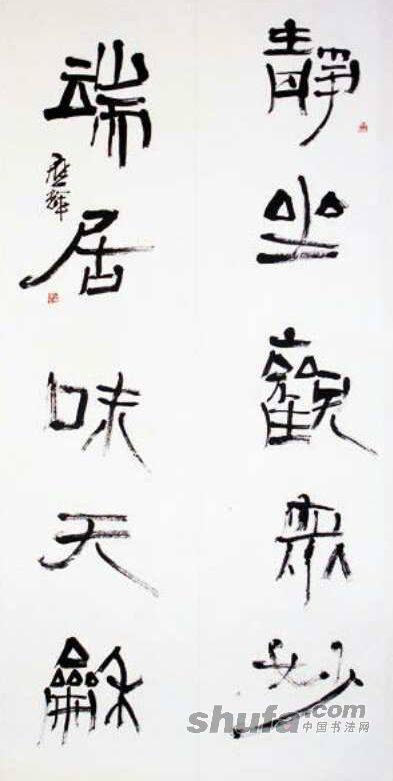 靜坐觀眾妙
端居味天龢
應輝
shufa.com
中国书法网